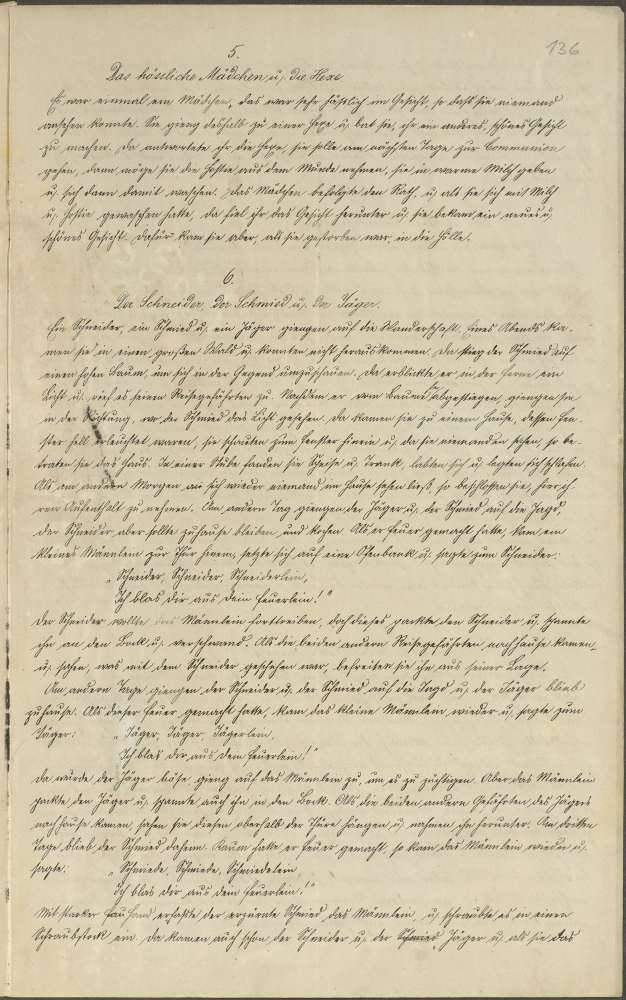 136
5.
Das hässliche Mädchen u. die Hexe
Es war einmal ein Mädchen, das war sehr häßlich im Gesicht, so daß sie niemand
ansehen konnte. Sie gieng deshalb zu einer Hexe u. bat sie, ihr ein anderes, schönes Gesicht
zu machen. Da antwortete ihr die Hexe, sie solle am nächsten Tage zur Communion
gehen, dann möge sie die Hostie aus dem Munde nehmen, sie in warme Milch geben
u. sich dann damit waschen. Das Mädchen befolgte den Rath, u. als sie sich mit Milch
u. Hostie gewaschen hatte, da fiel ihr das Gesicht herunter u. sie bekam ein neues u.
schönes Gesicht. Dafür kam sie aber, als sie gestorben war, in die Hölle.
6.
Der Schneider, der Schmied u. der Jäger.
Ein Schneider, ein Schmied u. ein Jäger giengen auf die Wanderschaft. Eines Abends ka-
men sie in einen großen Wald u. konnten nicht herauskommen. Da stieg der Schmied auf
einen hohen Baum, um sich in der Gegend umzuschauen. Da erblickte er in der Ferne ein
Licht u. rief es seinen Reisegefährten zu. Nachdem er vom Baume abgestiegen, giengen sie
in der Richtung, wo der Schmied das Licht gesehen. Da kamen sie zu einem Hause, dessen Fen-
ster hell erleuchtet waren, sie schauten zum Fenster hinein u. da sie niemanden sahen, so be-
traten sie das Haus. In einer Stube fanden sie Speise u. Trank, labten sich u. legten sich schlafen.
Als am andern Morgen sich wieder niemand im Hause sehen ließ, so beschlossen sie, hier ih
ren Aufenthalt zu nehmen. Am andern Tag giengen der Jäger u. der Schmied auf die Jagd,
der Schneider aber sollte zuhause bleiben und kochen. Als er Feuer gemacht hatte, kam ein
kleines Männlein zur Thür hinein, setzte sich auf eine Ofenbank u. sagte zum Schneider:
„Schneider, Schneider, Schneiderlein,
Ich blas dir aus dein Feuerlein!"
Der Schneider wollte das Männlein forttreiben, doch dieses packte den Schneider u. spannte
ihn an den Bock u. verschwand. Als die beiden andern Reisegefährten nachhause kamen,
u. sahen, was mit dem Schneider geschehen war, befreiten sie ihn aus seiner Lage.
Am andern Tage giengen der Schneider u. der Schmied auf die Jagd u. der Jäger blieb
zuhause. Als dieser Feuer gemacht hatte, kam das kleine Männlein wieder u. sagte zum
Jäger: „Jäger, Jäger, Jägerlein,
Ich blas dir aus dein Feuerlein!"
Da wurde der Jäger böse, gieng auf das Männlein zu, um es zu züchtigen. Aber das Männlein
packte den Jäger u. spannte auch ihn in den Bock. Als die beiden andern Gefährten des Jägers
nachhause kamen, sahen sie diesen oberhalb der Thüre hängen u. nahmen ihn herunter. Am dritten
Tage blieb der Schmied daheim. Kaum hatte er Feuer gemacht, so kam das Männlein wieder u.
sagte. „Schmiede, Schmiede, Schmiedelein
Ich blas dir aus dein Feuerlein!"
Mit starker Hand erfaßte der erzürnte Schmied das Männlein u. schraubte es in einen
Schraubstock ein. Da kamen auch schon der Schneider u. der Schmied Jäger u. als sie das